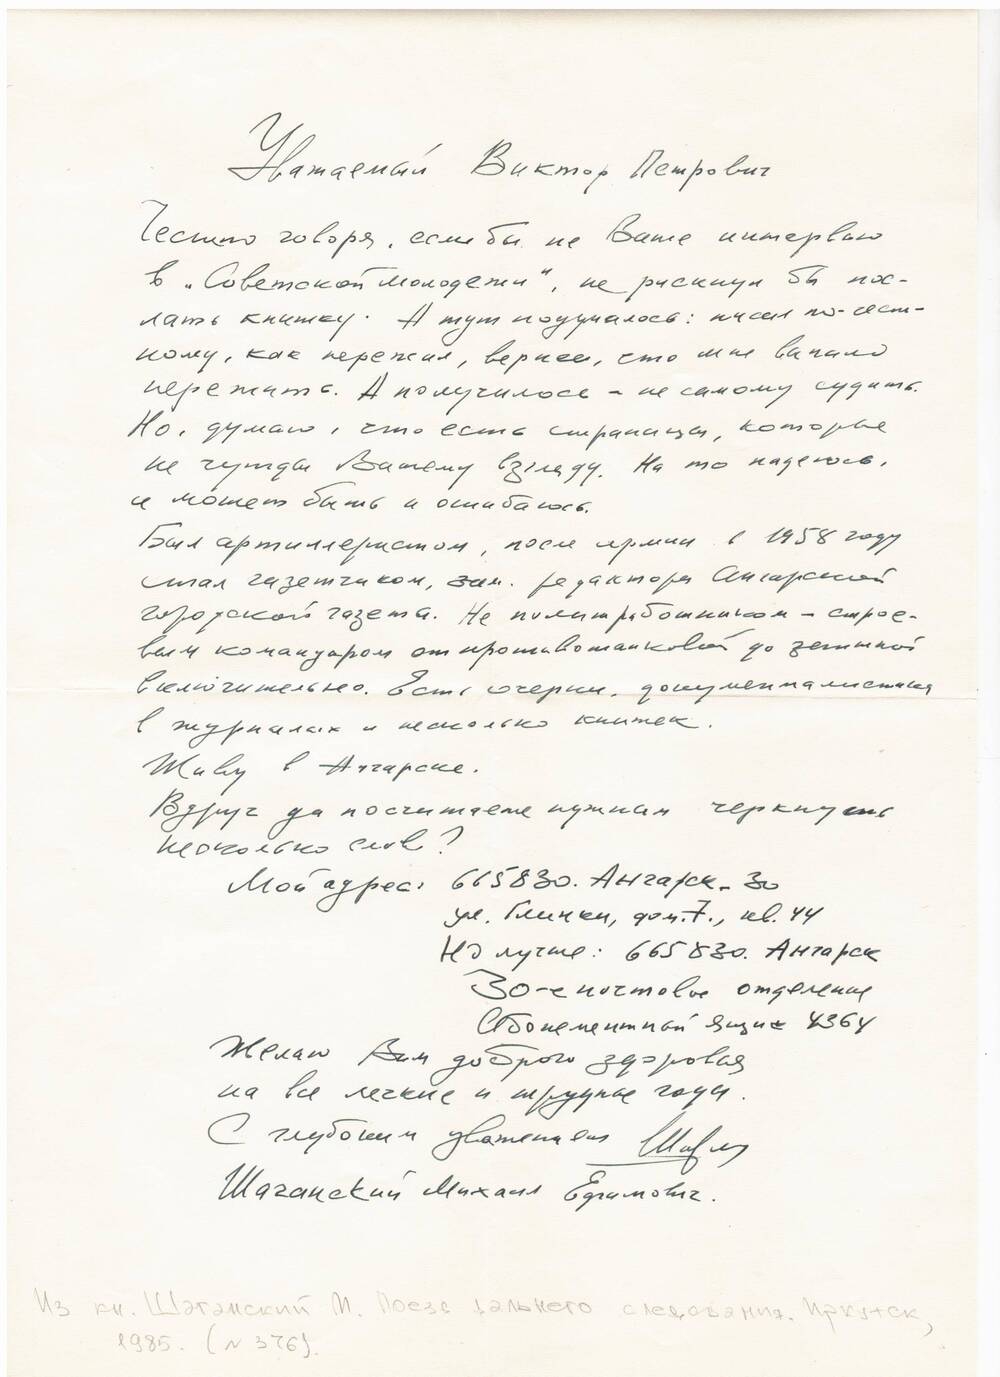 Уважаемый Виктор Петрович
Честно говоря, если бы не Ваше интервью
в „Советской молодежи", не рискнул бы пос-
лать книжку. А тут подумалось: писал по-чест-
ному, как пережил, вернее, что мне выпало
пережить. А получилось – не самому судить.
Но, думаю, что есть страницы, которые
не чужды Вашему взгляду. На то надеюсь,
и может быть и ошибаюсь.
Был артиллеристом, после армии в 1958 году
стал газетчиком, зам. редактора Ангарской
городской газеты. Не политработником – строе-
вым командиром от противотанковой до зенитной
включительно. Есть очерки, документалистика
в журналах и несколько книжек.
Живу в Ангарске.
Вдруг да посчитаете нужным черкнуть
несколько слов?
Мой адрес: 665830. Ангарск-30
ул. Глинки, дом.7., кв. 44
Но лучше: 665830. Ангарск
30-е почтовое отделение
Абонементный ящик 4364
Желаю Вам доброго здоровья
на все легкие и трудные годы.
С глубоким уважением
Шаганский Михаил Ефимович.
Из кн. Шаганский М. Поезд дальнего следования. Иркутск,
1985. (N 376).